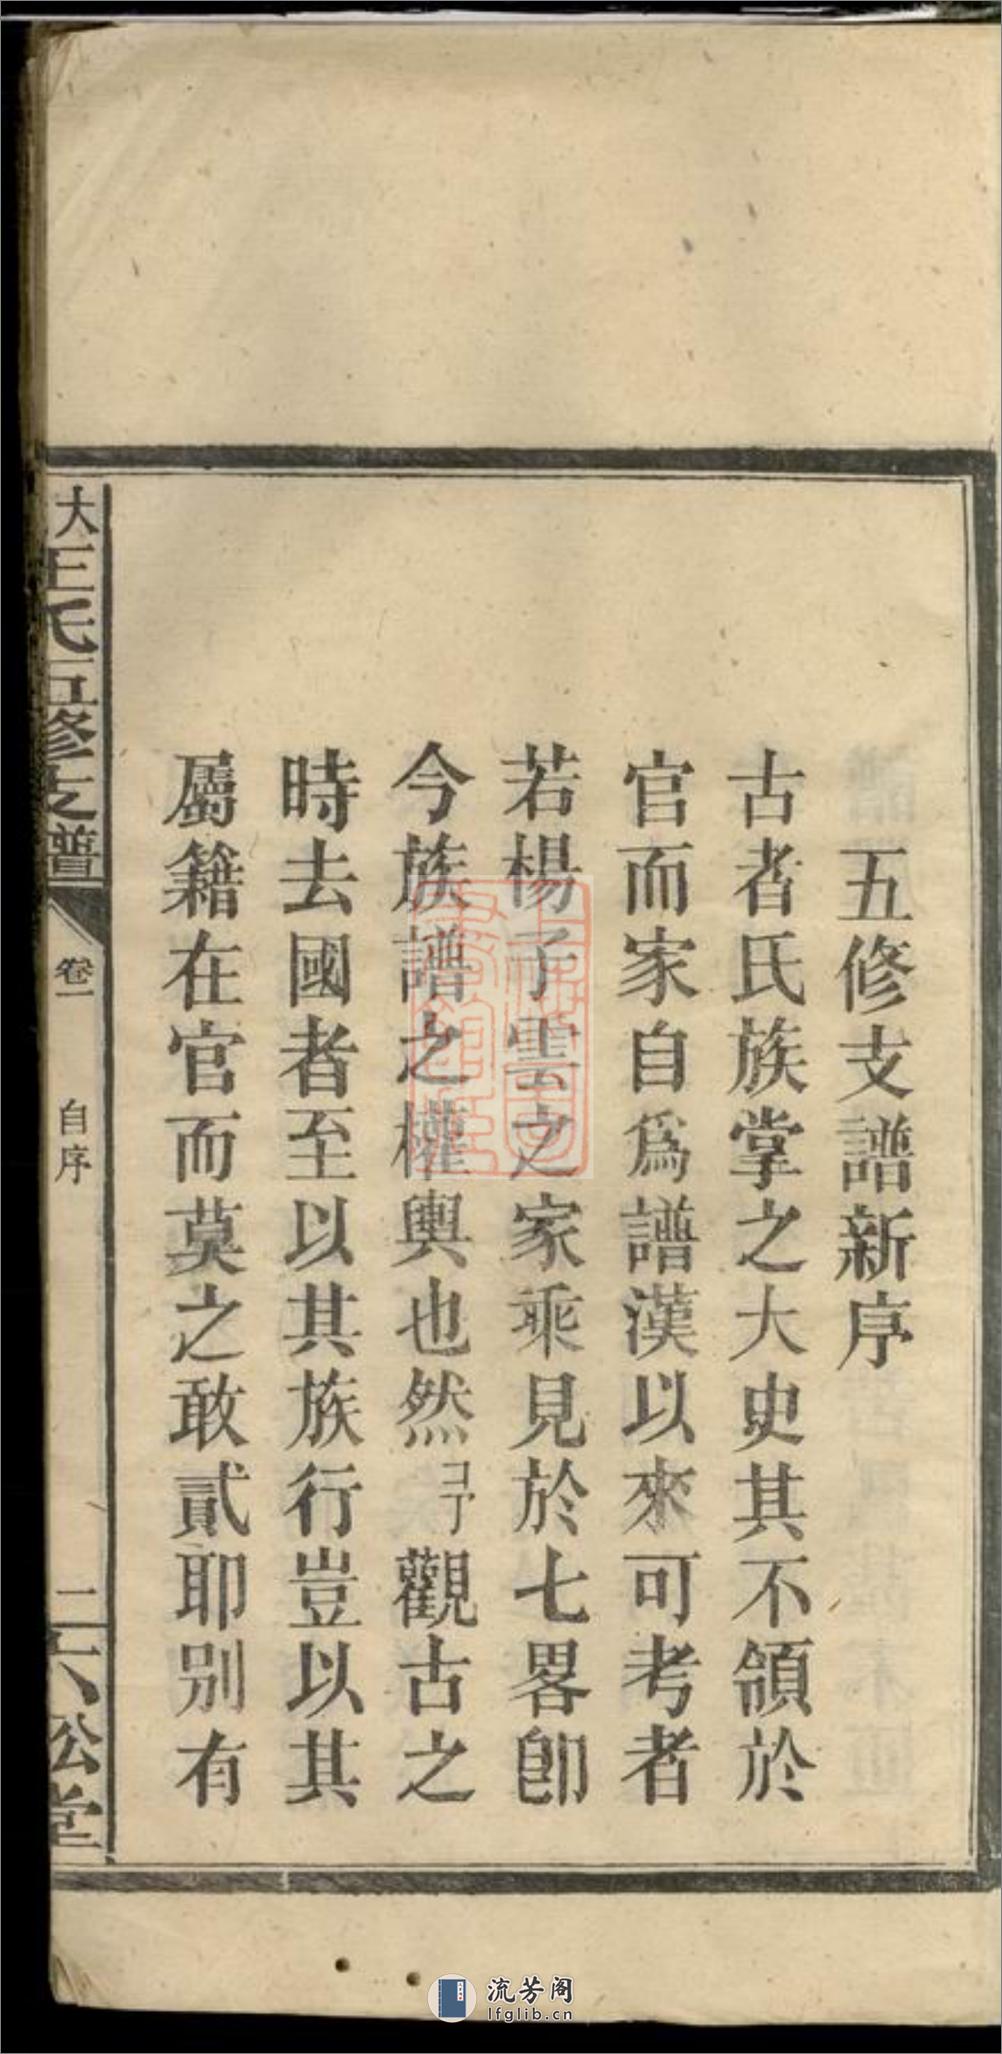 五修支譜新序
古者氏族掌之大史其不領於
官而家自爲譜漢以來可考者
若楊子雲之家乘見於七畧卽
今族譜之權輿也然予觀古之
時去國者至以其族行豈以其
屬籍在官而莫之敢貳耶别有
大王氏五修支譜
卷一
自序
二
六松堂
流芳阁
lfglib.cn